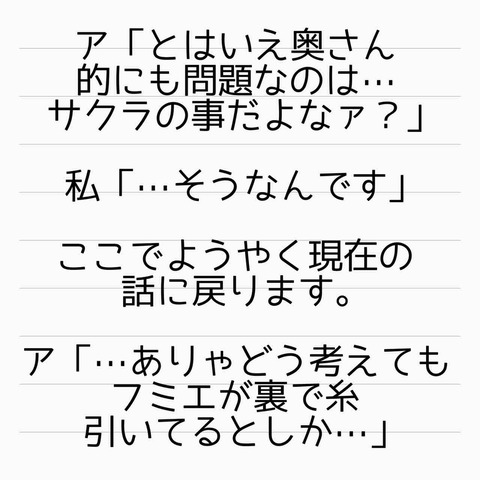 ア「とはいえ奥さん
的にも問題なのは…
サクラの事だよなァ？」
私「…そうなんです」
ここでようやく現在の
話に戻ります。
ア「…ありゃどう考えても
フミエが裏で糸
引いてるとしか…」